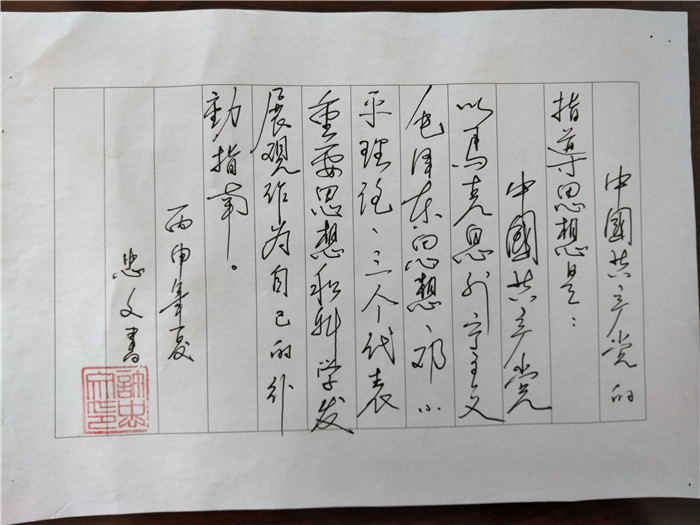 中國共产党的
指導思想是：
中國共产党
以馬克思列宁主义
毛泽东思想、邓小
平理论、三个代表
重要思想和科学发
展观作为自己的行
動指南。
丙申年夏
忠文書
許忠文印